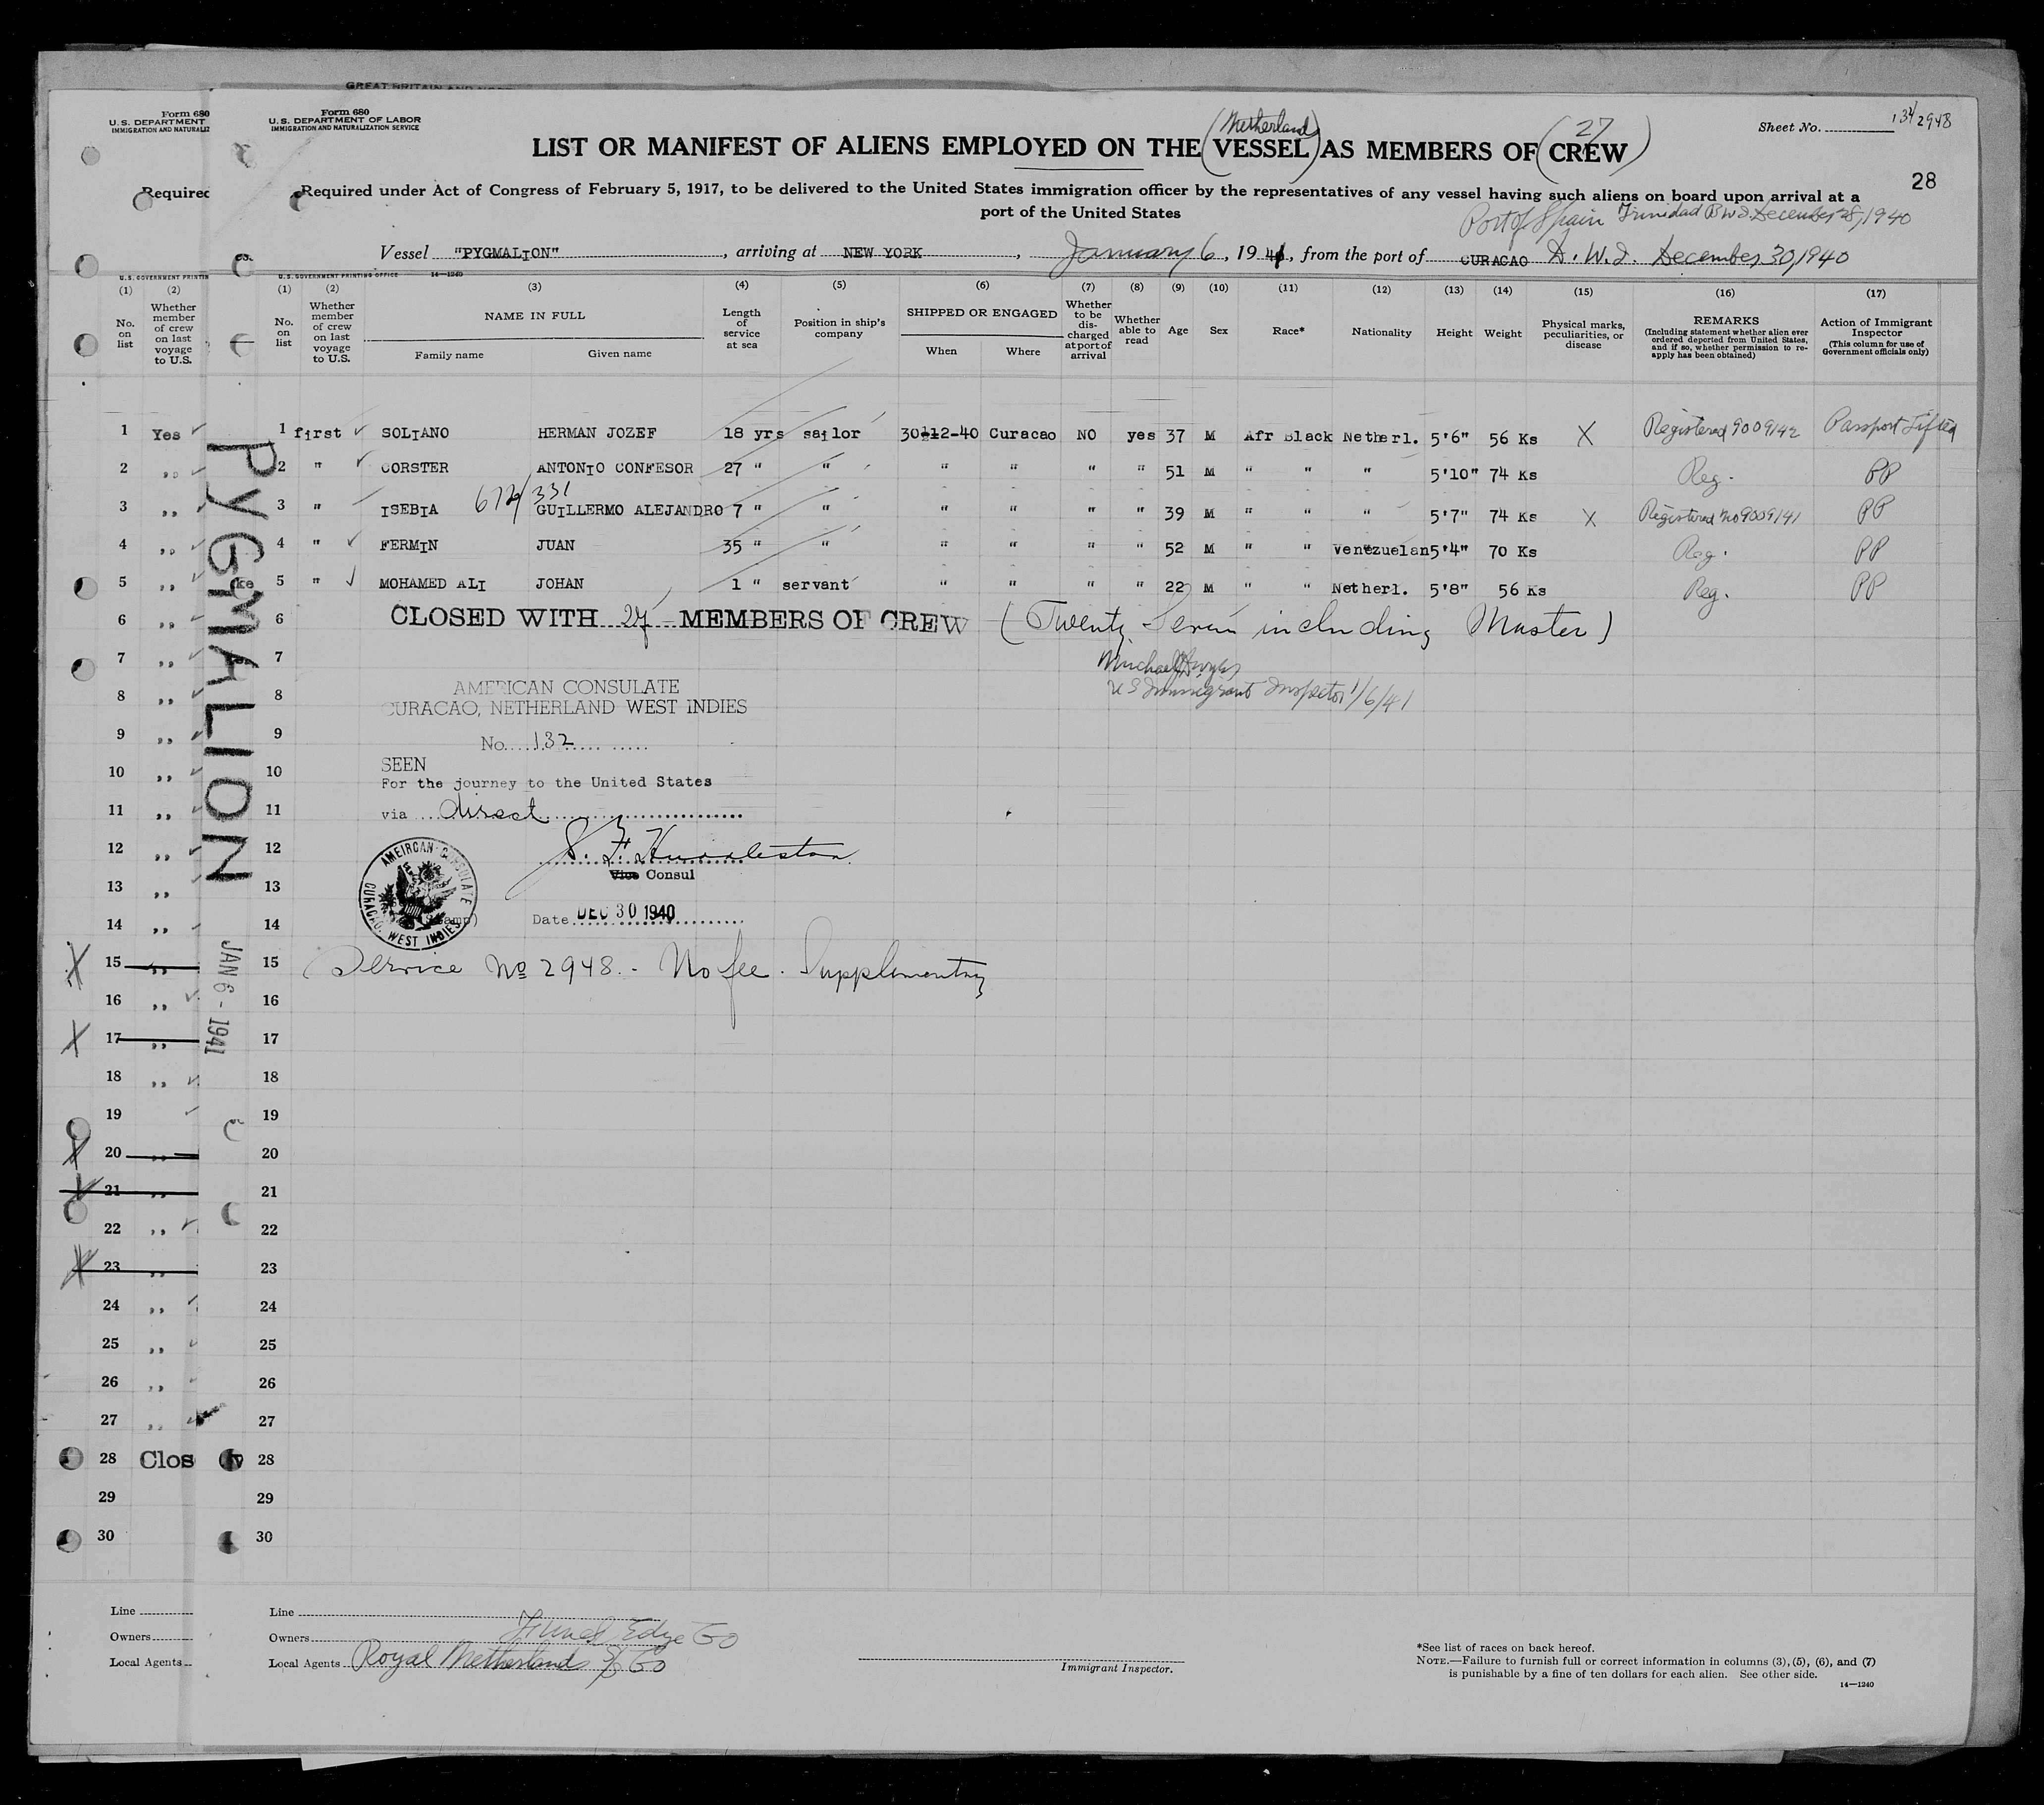 GREAT BRITAIN AND
Form 680
U.S. DEPARTMENT
IMMIGRATION AND NATURALIZ
Required
U.S. GOVERNMENT PRINTIN
(1) (2)
No. on list
Whether member of crew on last voyage to U.S.
1 Yes
2 ,,
3 ,,
4 ,,
5 ,,
6 ,,
7 ,,
8 ,,
9 ,,
10 ,,
11 ,,
12 ,,
13 ,,
14 ,,
15 ,,
16 ,,
17 ,,
18 ,,
19
20 ,,
21 ,,
22 ,,
23 ,,
24 ,,
25 ,,
26 ,,
27 ,,
28 Clos
29
30
Line
Owners
Local Agents
PYGMALION
JAN 6 - 1941
Form 680
U.S. DEPARTMENT OF LABOR
IMMIGRATION AND NATURALIZATION SERVICE
(Netherland) (27)
Sheet No. 2948
LIST OR MANIFEST OF ALIENS EMPLOYED ON THE VESSEL AS MEMBERS OF CREW
28
Required under Act of Congress of February 5, 1917, to be delivered to the United States immigration officer by the representatives of any vessel having such aliens on board upon arrival at a
port of the United States
Port of Spain Trinidad B W I December 28, 1940
Vessel "PYGMALION", arriving at NEW YORK, January 6, 1941, from the port of CURACAO D.W.I. December 30, 1940
U.S. GOVERNMENT PRINTING OFFICE 14—1240
(1) (2) (3) (4) (5) (6) (7) (8) (9) (10) (11) (12) (13) (14) (15) (16) (17)
No. on list
Whether member of crew on last voyage to U.S.
NAME IN FULL
Family name Given name
Length of service at sea
Position in ship's company
SHIPPED OR ENGAGED
When Where
Whether to be discharged at port of arrival
Whether able to read
Age
Sex
Race*
Nationality
Height
Weight
Physical marks, peculiarities, or disease
REMARKS
(Including statement whether alien ever ordered deported from United States, and if so, whether permission to reapply has been obtained)
Action of Immigrant Inspector
(This column for use of Government officials only)
1 first SOLIANO HERMAN JOZEF 18 yrs sailor 30-12-40 Curacao NO yes 37 M Afr Black Netherl. 5'6" 56 Ks X Registered 9009142 Passport Lifted
2 " CORSTER ANTONIO CONFESOR 27 " " " " " " 51 M " " " 5'10" 74 Ks Reg. PP
672/331
3 " ISEBIA GUILLERMO ALEJANDRO 7 " " " " " " 39 M " " " 5'7" 74 Ks X Registered No 9009141 PP
4 " FERMIN JUAN 35 " " " " " " 52 M " " Venezuelan 5'4" 70 Ks Reg. PP
5 " MOHAMED ALI JOHAN 1 " servant " " " " 22 M " " Netherl. 5'8" 56 Ks Reg. PP
6 CLOSED WITH 27 MEMBERS OF CREW (Twenty Seven including Master)
7
8 AMERICAN CONSULATE
U S Immigrant Inspector 1/6/41
CURACAO, NETHERLAND WEST INDIES
9 No. 132
10 SEEN
For the journey to the United States
11 via direct
12
Vice Consul
13
AMEIRCAN CONSULATE
CURACAO, WEST INDIES
14 Date DEC 30 1940
15 Service No 2948.- No fee. Supplementary
16
17
18
19
20
21
22
23
24
25
26
27
28
29
30
Line
Owners
Local Agents Royal Netherlands S/S Co
Immigrant Inspector.
*See list of races on back hereof.
NOTE.—Failure to furnish full or correct information in columns (3), (5), (6), and (7)
is punishable by a fine of ten dollars for each alien. See other side.
14—1240